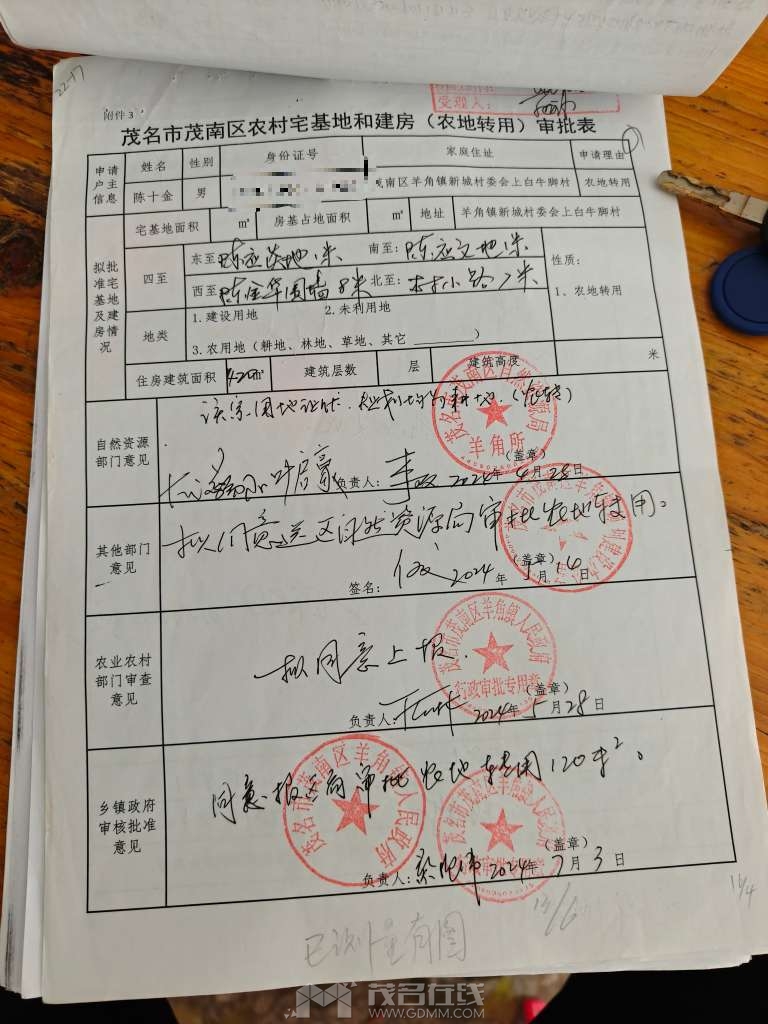 22-17
附件3
受理人：
茂名市茂南区农村宅基地和建房（农地转用）审批表
申请户主信息 姓名 性别 身份证号 家庭住址 申请理由
陈十金 男 茂南区羊角镇新城村委会上白牛脚村 农地转用
拟批准宅基地及建房情况 宅基地面积 ㎡ 房基占地面积 ㎡ 地址 羊角镇新城村委会上白牛脚村
四至 东至： 地1米 南至： 地1米 性质：
西至：陈金华围墙8米 北至： 小路7米 1、农地转用
地类 1.建设用地 2.未利用地
3.农用地（耕地、林地、草地、其它 ）
住房建筑面积 420㎡ 建筑层数 层 建筑高度 米
自然资源部门意见
羊角所
（盖章）
负责人： 2024年4月28日
其他部门意见 拟同意送区自然资源局审批农地转用。
（盖章）
签名： 2024年5月14日
农业农村部门审查意见 拟同意上报.
茂名市茂南区羊角镇人民政府
行政审批专用章
（盖章）
负责人： 2024年5月28日
乡镇政府审核批准意见 同意报区局审批农地转用120米²。
茂名市茂南区羊角镇人民政府
茂名市茂南区羊角镇人民政府
行政审批专用章
（盖章）
负责人： 2024年7月3日
13/6
16/4
茂名在线
WWW.GDMM.COM